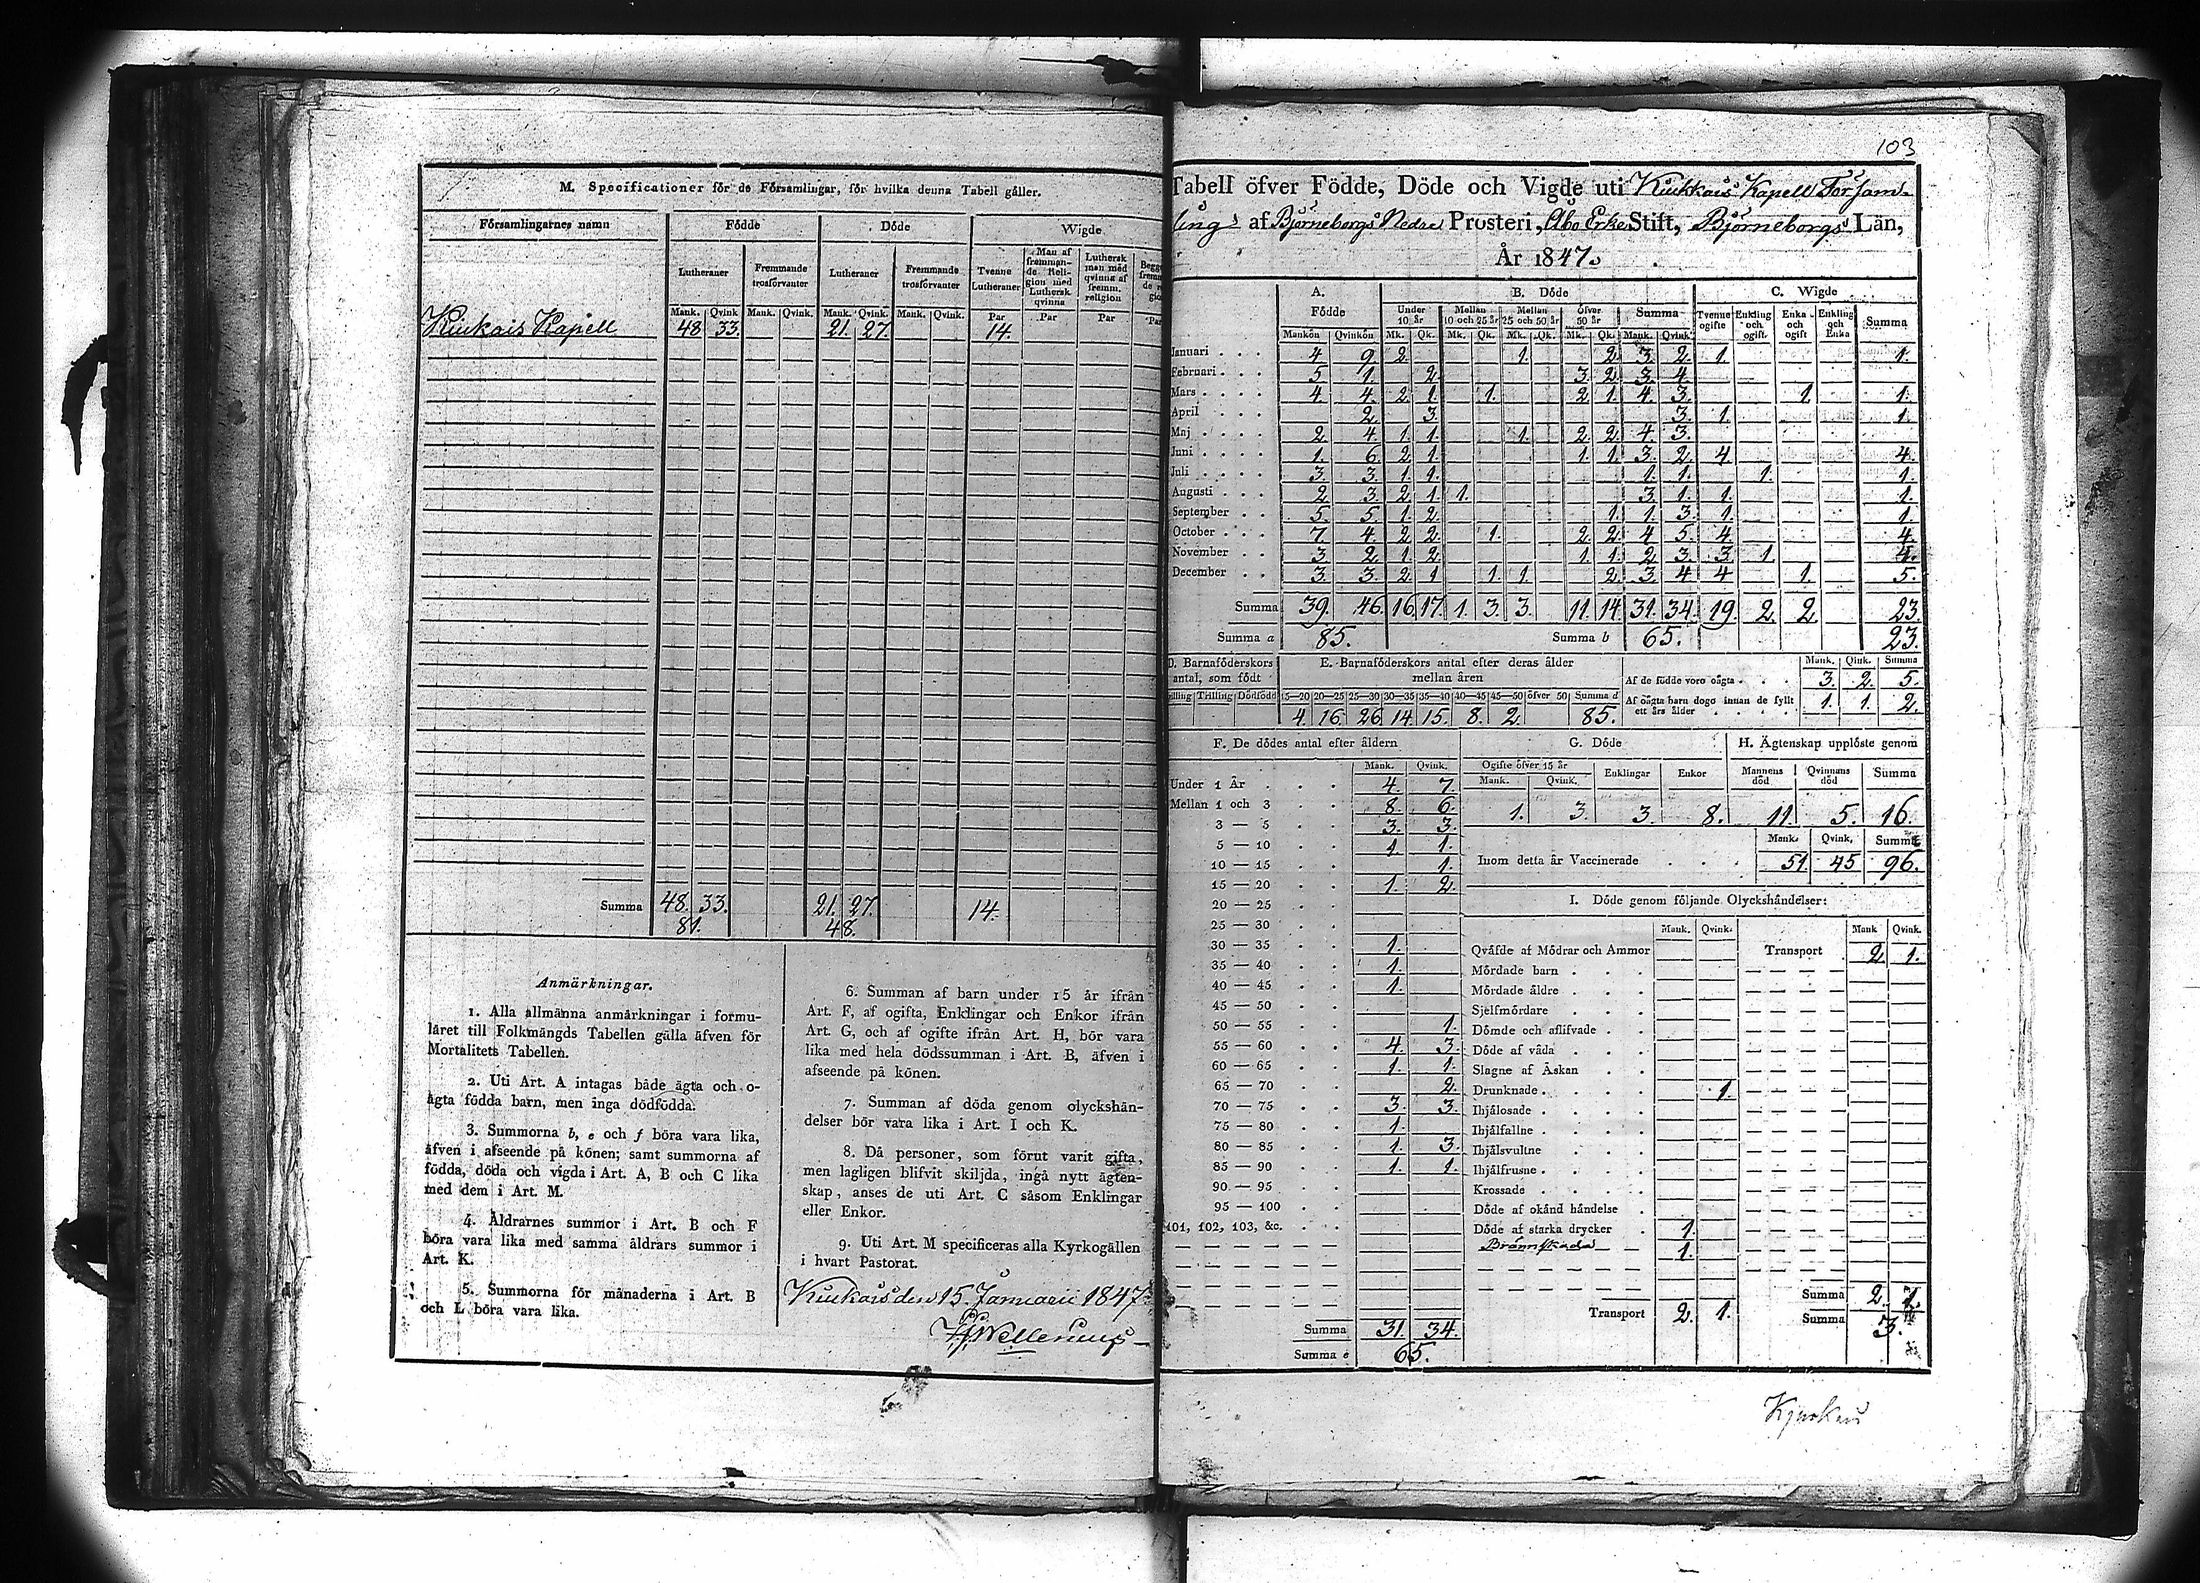 M. Specificationer för de Församlingar, för hvilka denna Tabell gäller.
Församlingarnes namn | Födde | Döde | Wigde
Lutheraner | Fremmande trosförvanter | Lutheraner | Fremmande trosförvanter | Tvenne Lutheraner | Man af fremmande Religion med Luthersk qvinna | Luthersk man med qvinna af fremm. religion
Mank. | Qvink | Mank. | Qvink. | Mank. | Qvink. | Mank. | Qvink. | Par | Par | Par | Par
Kiukais Kapell 48 33. 21. 27. 14.
Summa 48. 33. 21. 27. 14.
81. 48.
Anmärkningar.
1. Alla allmänna anmärkningar i formu-
läret till Folkmängds Tabellen gälla äfven för
Mortalitets Tabellen.
2. Uti Art. A intagas både ägta och o-
ägta födda barn, men inga dödfödda.
3. Summorna b, e och f böra vara lika,
äfven i afseende på könen; samt summorna af
födda, döda och vigda i Art. A, B och C lika
med dem i Art. M.
4. Åldrarnes summor i Art. B och F
böra vara lika med samma åldrars summor i
Art. K.
5. Summorna för månaderna i Art. B
och L böra vara lika.
6. Summan af barn under 15 år ifrån
Art. F, af ogifta, Enklingar och Enkor ifrån
Art. G, och af ogifte ifrån Art. H, bör vara
lika med hela dödssumman i Art. B, äfven i
afseende på könen.
7. Summan af döda genom olyckshän-
delser bör vara lika i Art. I och K.
8. Då personer, som förut varit gifta,
men lagligen blifvit skiljda, ingå nytt ägten-
skap, anses de uti Art. C såsom Enklingar
eller Enkor.
9. Uti Art. M specificeras alla Kyrkogällen
i hvart Pastorat.
Kiukais den 15. Januarii 1847
103
Tabell öfver Födde, Döde och Vigde uti Kiukkais Kapell Församl-
ling af Björneborgs Nedre Prosteri, Åbo Erke Stift, Björneborgs Län,
År 1847.
A. Födde | B. Döde | C. Wigde
Under 10 år | Mellan 10 och 25 år | Mellan 25 och 50 år | Öfver 50 år | Summa | Tvenne ogifte | Enkling och ogift. | Enka och ogift | Enkling och Enka | Summa
Mankön | Qvinkön | Mk. | Qk. | Mk. | Qk. | Mk. | Qk. | Mk. | Qk. | Mank. | Qvink.
Januari 4 9 2. 1. 2. 3. 2. 1. 1.
Februari 5 1. 2. 3. 2. 3. 4.
Mars 4. 4. 2. 1. 1. 2. 1. 4. 3. 1. 1.
April 2. 3. 3. 1. 1.
Maj 2. 4. 1. 1. 1. 2. 2. 4. 3.
Juni 1. 6. 2. 1. 1. 1. 3. 2. 4. 4.
Juli 3. 3. 1. 1. 1. 1. 1. 1.
Augusti 2. 3. 2. 1. 1. 3. 1. 1. 1.
September 5. 5. 1. 2. 1. 1. 3. 1. 1.
October 7. 4. 2. 2. 1. 2. 2. 4. 5. 4. 4.
November 3. 2. 1. 2. 1. 1. 2. 3. 3. 1. 4.
December 3. 3. 2. 1 1. 1. 2. 3. 4 4 1. 5.
Summa 39. 46. 16 17. 1. 3. 3. 11. 14. 31. 34. 19. 2. 2. 23.
Summa a 85. Summa b 65. 23.
D. Barnaföderskors antal, som födt | E. Barnaföderskors antal efter deras ålder mellan åren
Trilling | Dödfödd | 15—20 | 20—25 | 25—30 | 30—35 | 35—40 | 40—45 | 45—50 | öfver 50 | Summa d
4. 16. 26 14. 15. 8. 2. 85.
Mank. | Qink. | Summa
Af de födde voro oägta 3. 2. 5.
Af oägta barn dogo innan de fyllt ett års ålder 1. 1. 2.
F. De dödes antal efter åldern
Mank. | Qvink.
Under 1 År 4. 7.
Mellan 1 och 3 8. 6.
3 — 5 3. 3.
5 — 10 1. 1.
10 — 15 1.
15 — 20 1. 2.
20 — 25
25 — 30
30 — 35 1.
35 — 40 1.
40 — 45 1.
45 — 50
50 — 55 1.
55 — 60 4. 3.
60 — 65 1. 1.
65 — 70 2.
70 — 75 3. 3.
75 — 80 1.
80 — 85 1. 3.
85 — 90 1. 1.
90 — 95
95 — 100
101, 102, 103, &c.
Summa 31. 34.
Summa e 65.
G. Döde
Ogifte öfver 15 år | Enklingar | Enkor
Mank. | Qvink.
1. 3. 3. 8.
H. Ägtenskap upplöste genom
Mannens död | Qvinnans död | Summa
11. 5. 16.
Mank. | Qvink. | Summa
Inom detta år Vaccinerade 51. 45 96.
I. Döde genom följande Olyckshändelser:
Mank. | Qvink. | Mank | Qvink.
Qväfde af Mödrar och Ammor Transport 2 1.
Mördade barn
Mördade äldre
Sjelfmördare
Dömde och aflifvade
Döde af våda
Slagne af Åskan
Drunknade 1.
Ihjälosade
Ihjälfallne
Ihjälsvultne
Ihjälfrusne
Krossade
Döde af okänd händelse
Döde af starka drycker 1.
Brännskada 1.
Transport 2. 1.
Summa 2. 1.
Summa 3.